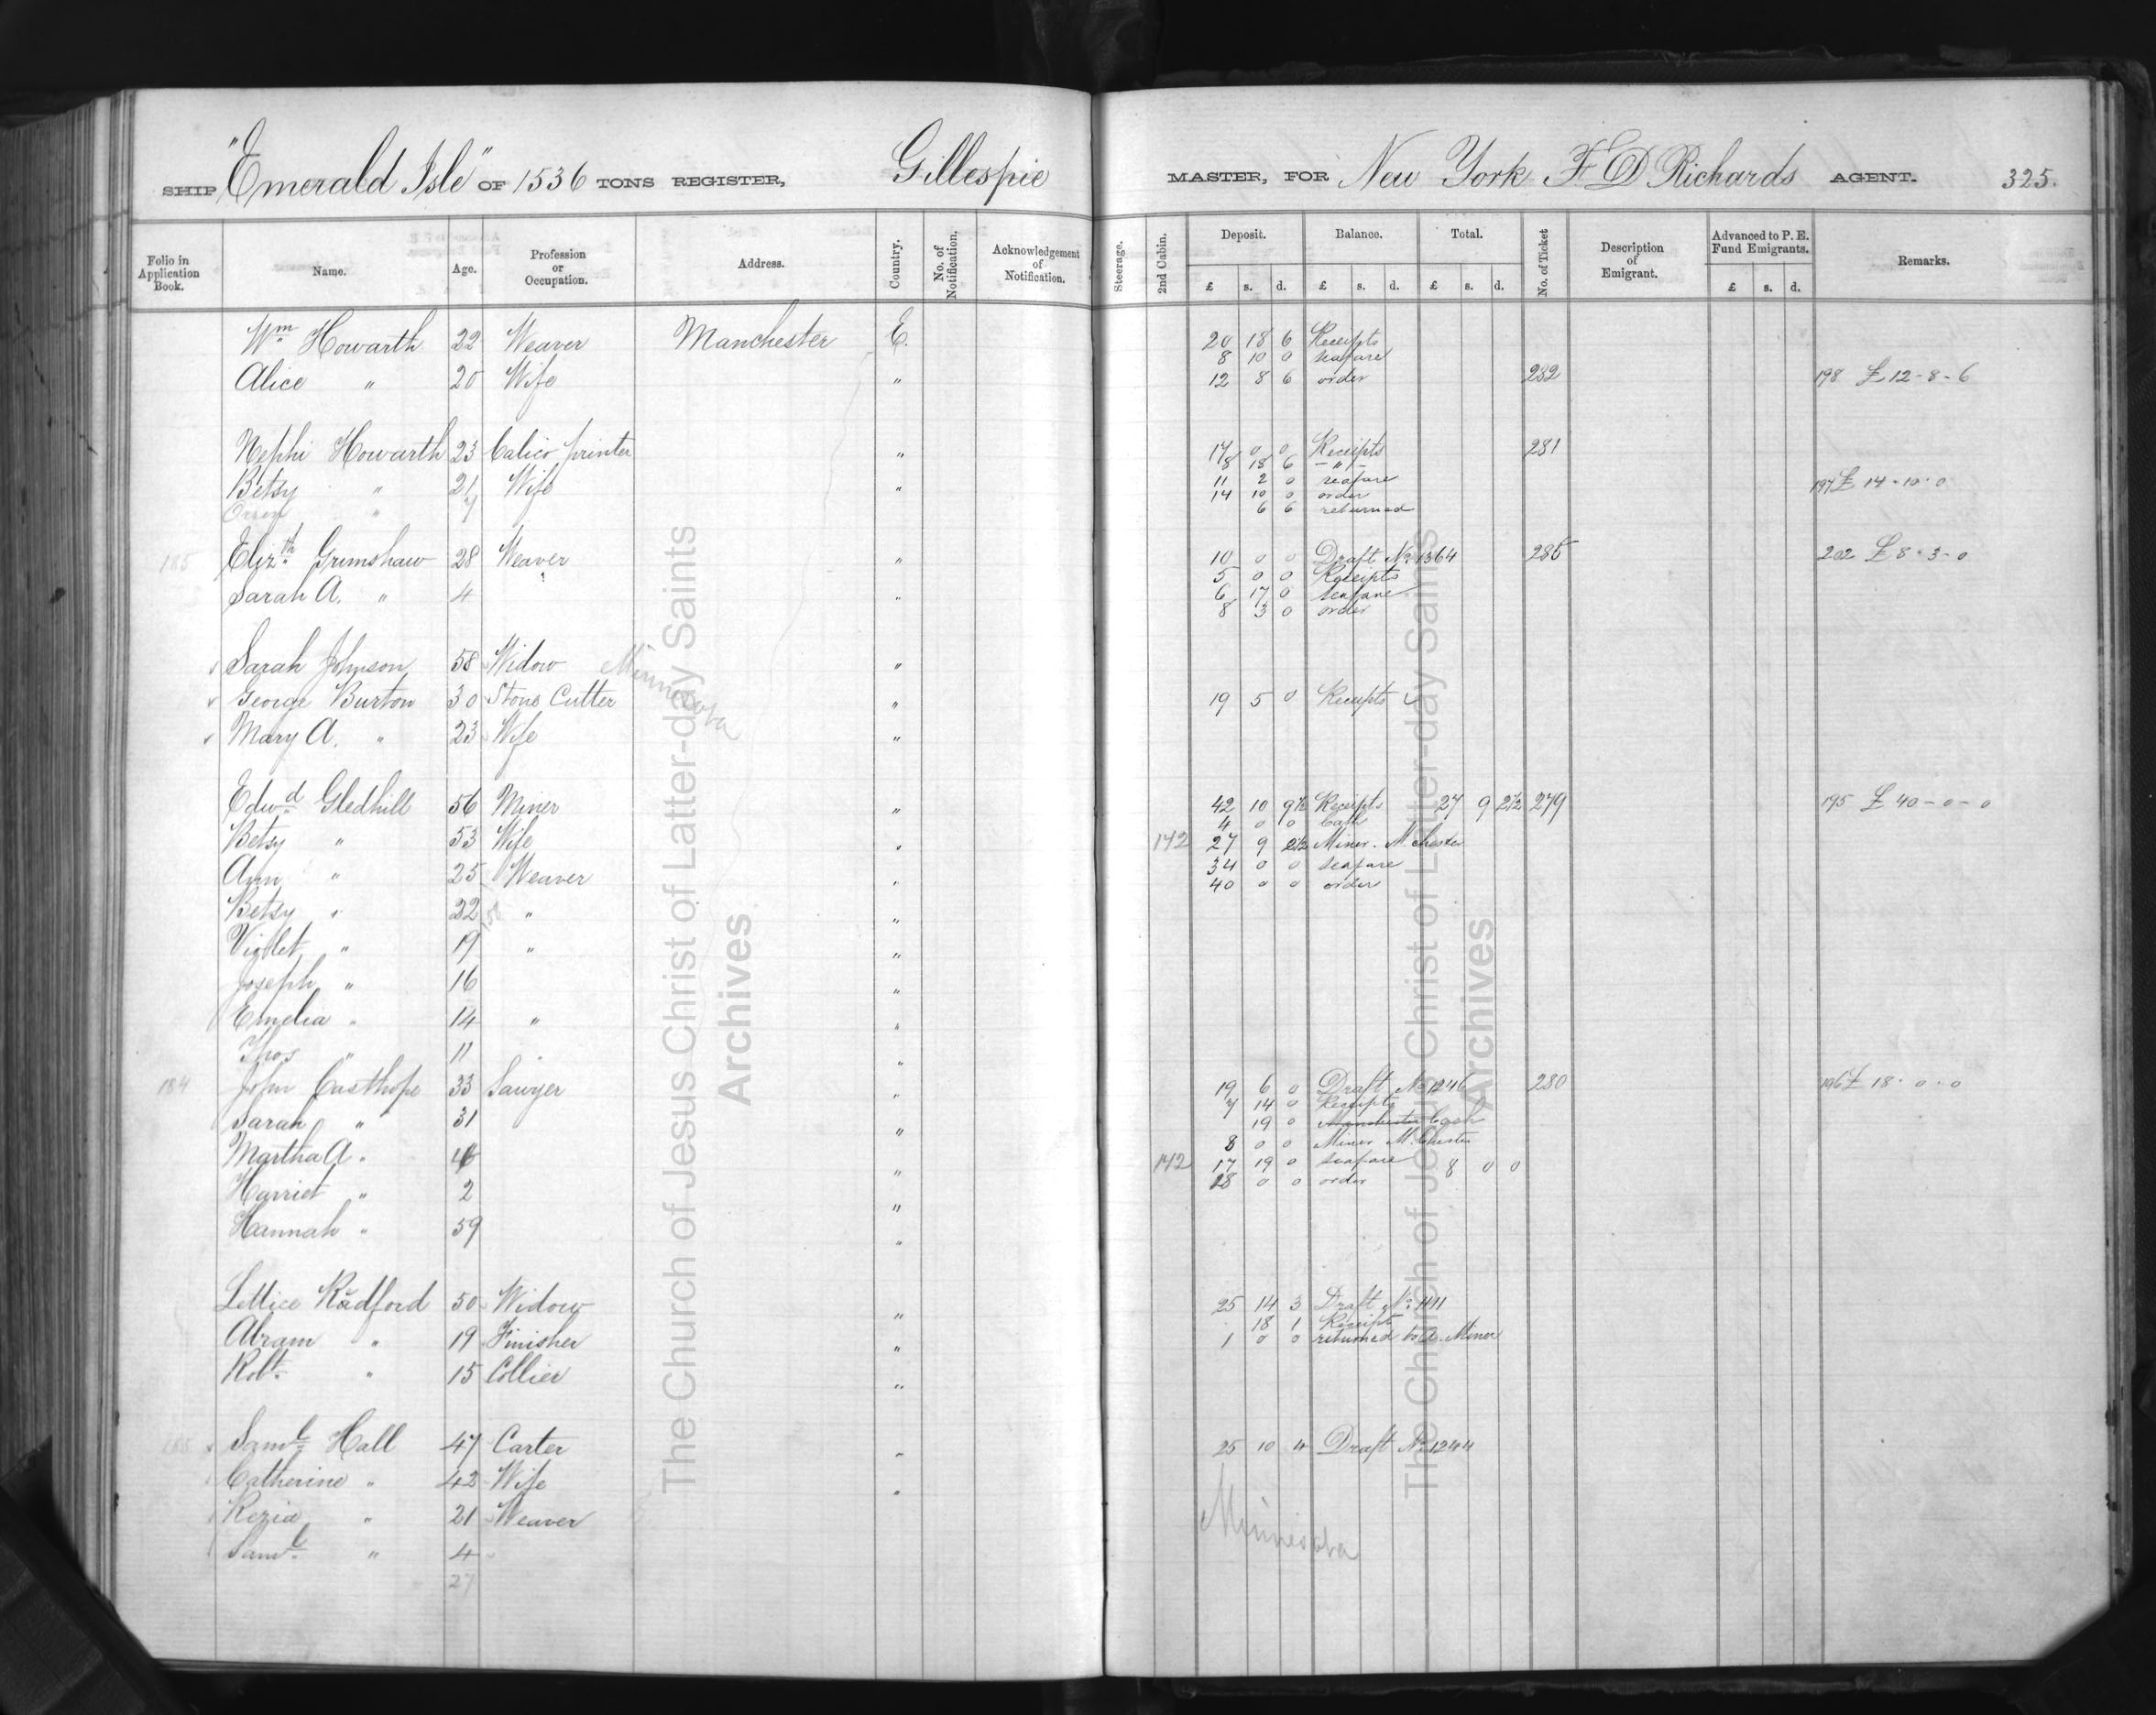 SHIP "Emerald Isle" OF 1536 TONS REGISTER, Gillespie MASTER, FOR New York F D Richards AGENT. 325.
Folio in Application Book. Name. Age. Profession or Occupation. Address. Country. No. of Notification. Acknowledgement of Notification. Steerage. 2nd Cabin. Deposit. Balance. Total. No. of Ticket Description of Emigrant. Advanced to P. E. Fund Emigrants. Remarks.
£ s. d. £ s. d. £ s. d. £ s. d.
Wm Howarth 22 Weaver Manchester E. 20 18 6 Receipts
8 10 0 seafare
Alice " 20 Wife " 12 8 6 order 282 198 £12-8-6
Nephi Howarth 23 Calico printer " 17 0 0 Receipts 281
8 18 6 - " -
Betsy " 21 Wife " 11 2 0 seafare 197 £ 14-10-0
14 10 0 order
" 6 6 returned
185 Elizth Grimshaw 28 Weaver " 10 0 0 Draft No 1364 285 202 £8-3-0
5 0 0 Receipts
Sarah A. " 4 " 6 17 0 seafare
8 3 0 order
Sarah Johnson 58 Widow Minnesota "
George Burton 30 Stone Cutter " 19 5 0 Receipts
Mary A. " 23 Wife "
Edwd Gledhill 56 Miner " 42 10 9½ Receipts 27 9 2½ 279 195 £ 40-0-0
4 0 0 Cash
Betsy " 53 Wife " 142 27 9 2½ Miner. M.chester
Ann " 25 Weaver " 34 0 0 seafare
40 0 0 order
Betsy " 22 " "
Violet " 19 " "
Joseph " 16 "
Emelia " 14 " "
Thos " 11 " "
184 John Easthope 33 Sawyer " 19 6 0 Draft No 1246 280 196 £ 18-0-0
7 14 0 Receipts
Sarah " 31 " 19 0 Manchester Cash
8 0 0 Miner M.Chester
Martha A " 4 " 142 17 19 0 seafare 8 0 0
Harriet " 2 " 18 0 0 order
Hannah " 59 "
Lettice Radford 50 Widow " 25 14 3 Draft No 1411
18 1 Receipt
Abram " 19 Finisher " 1 0 0 returned to A. Miner
Robt " 15 Collier "
Saml Hall 47 Carter " 25 10 4 Draft No 1244
Catherine " 42 Wife "
Kezia " 21 Weaver Minnesota
Saml " 4
27
The Church of Jesus Christ of Latter-day Saints
Archives
The Church of Jesus Christ of Latter-day Saints
Archives